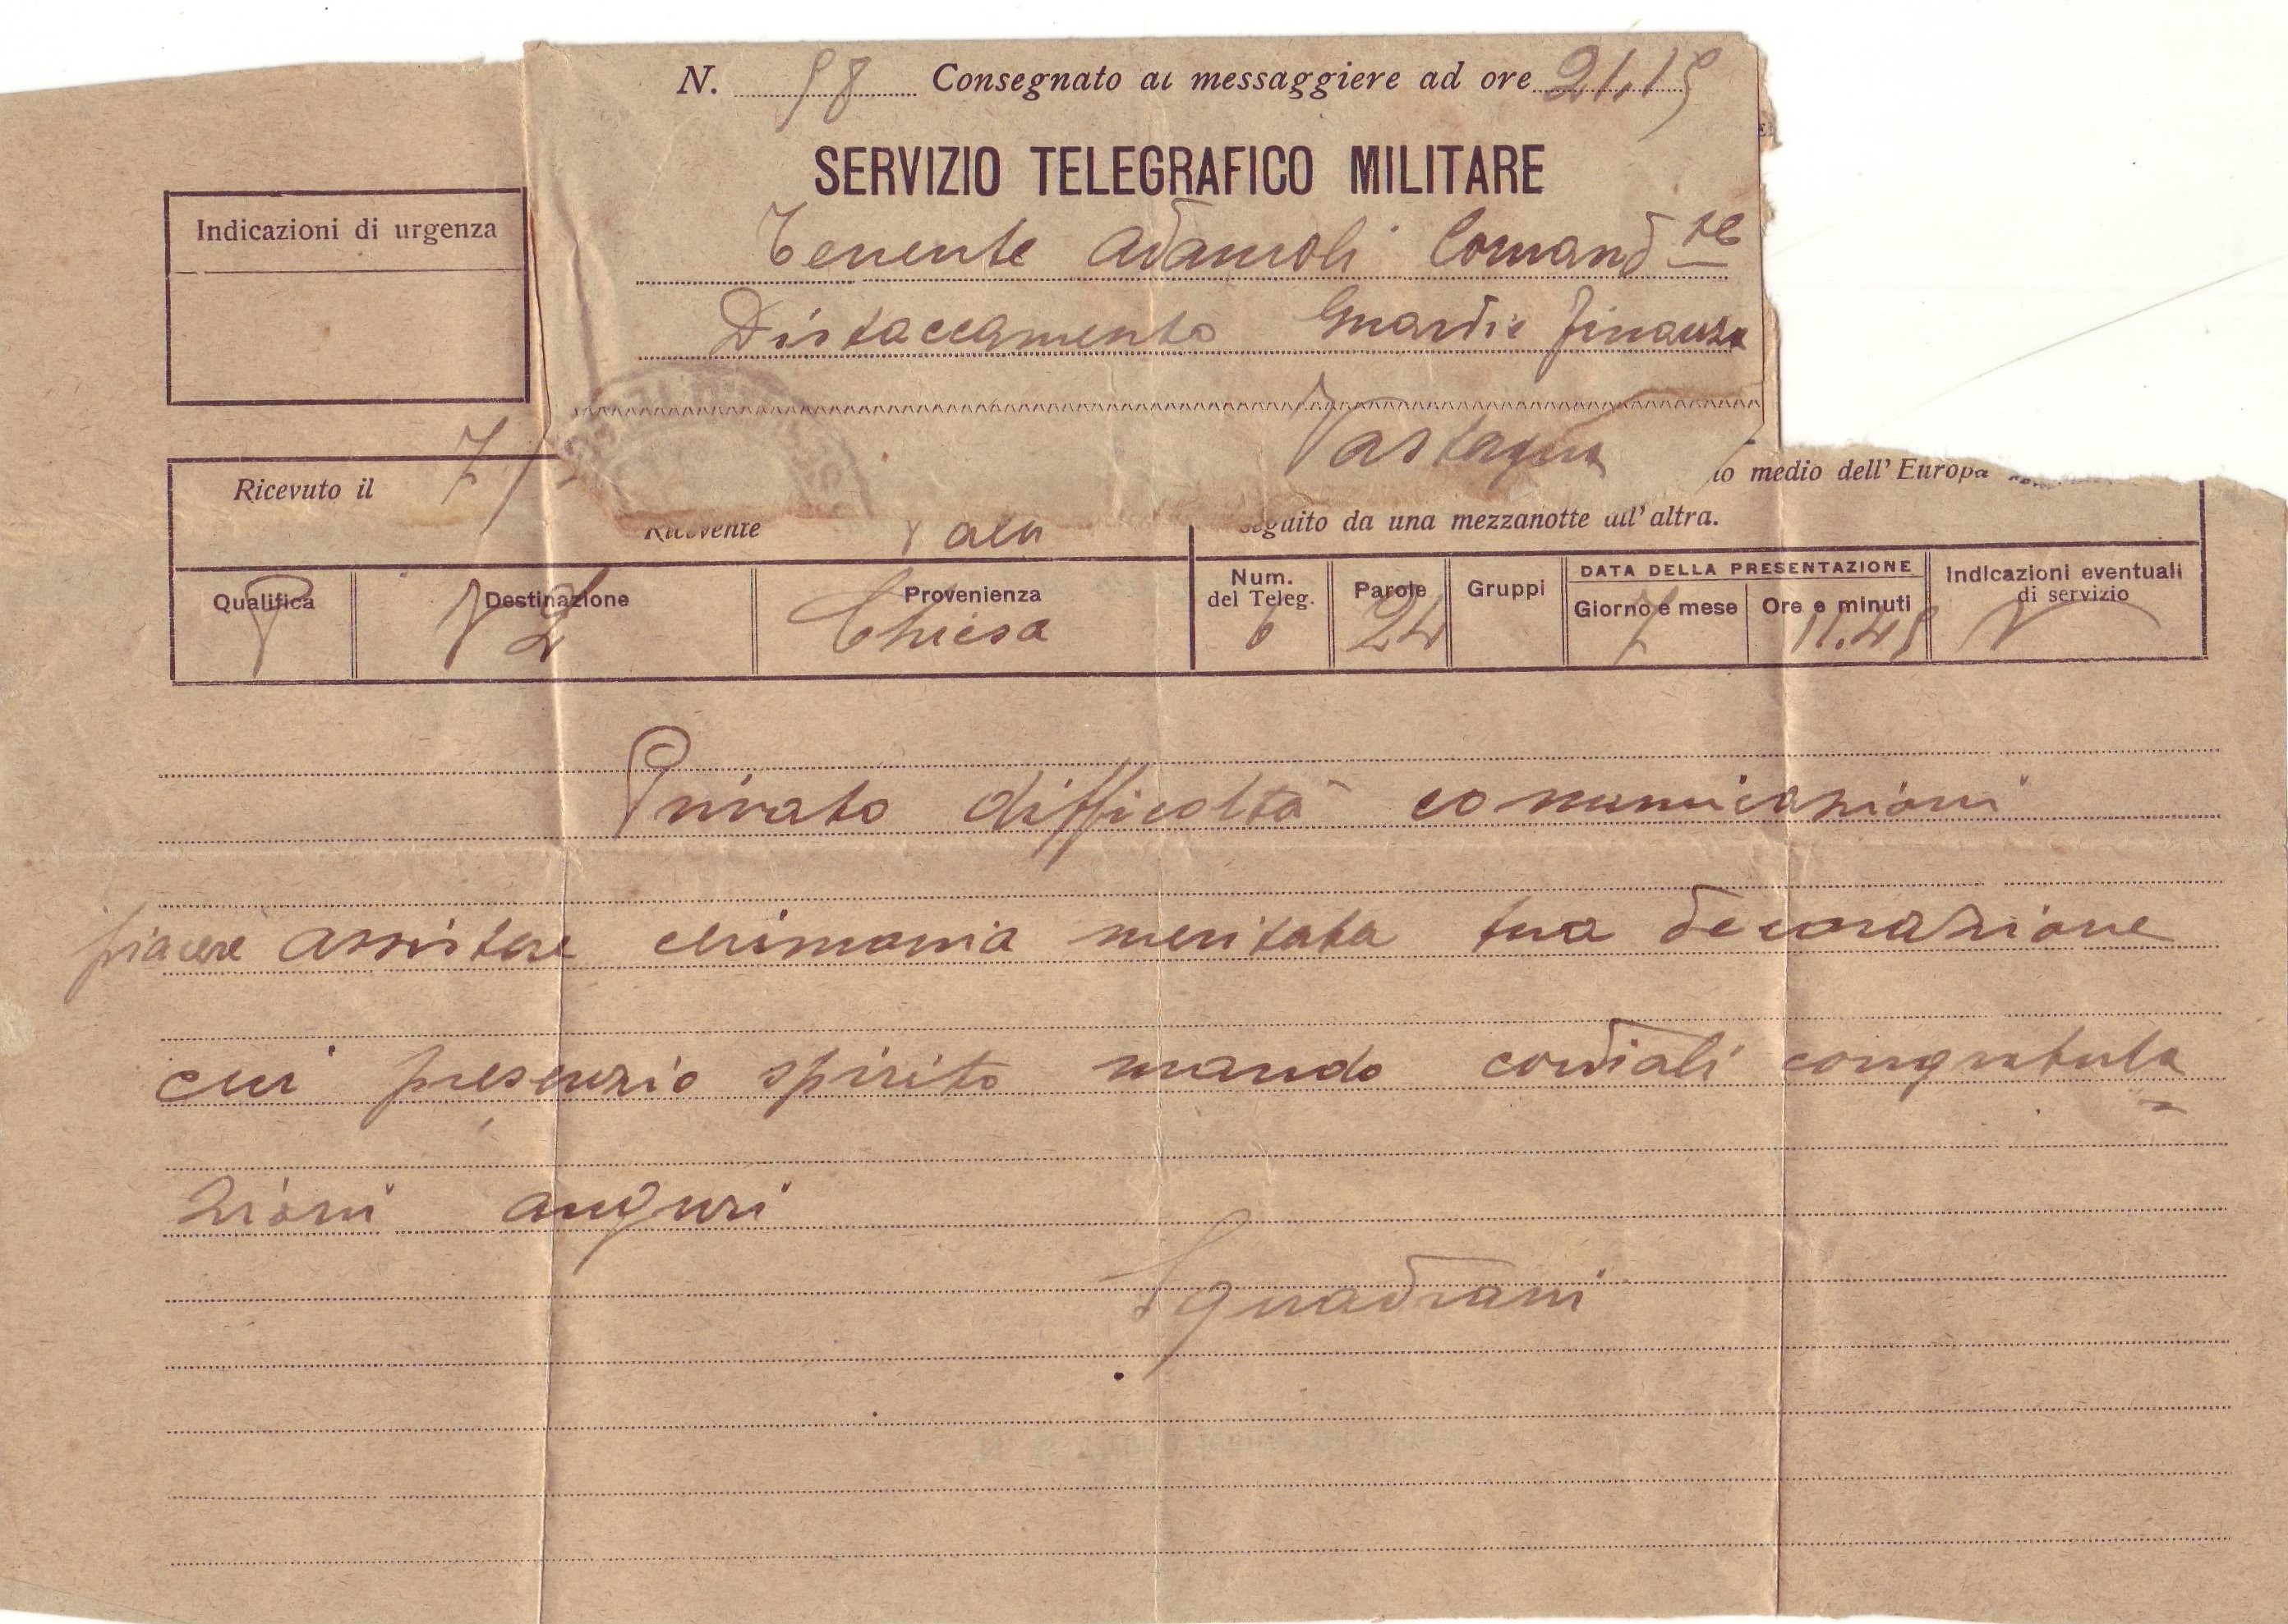 N. 58 Consegnato al messaggiere ad ore 21,15
SERVIZIO TELEGRAFICO MILITARE
Indicazioni di urgenza
Tenente Adamoli Comand te
Distaccamento Guardie finanza
Vastagna
Ricevuto il 7/
to medio dell'Europa
Ricevente
seguito da una mezzanotte all'altra.
Qualifica Destinazione Provenienza Num. del Teleg. Parole Gruppi DATA DELLA PRESENTAZIONE Giorno e mese Ore e minuti Indicazioni eventuali di servizio
P V2 Chiesa 6 24 7 11.45
Privato difficoltà comunicazioni
piacere assistere cerimonia meritata tua decorazione
cui presenzio spirito mando cordiali congratula=
zioni auguri
Squadrani